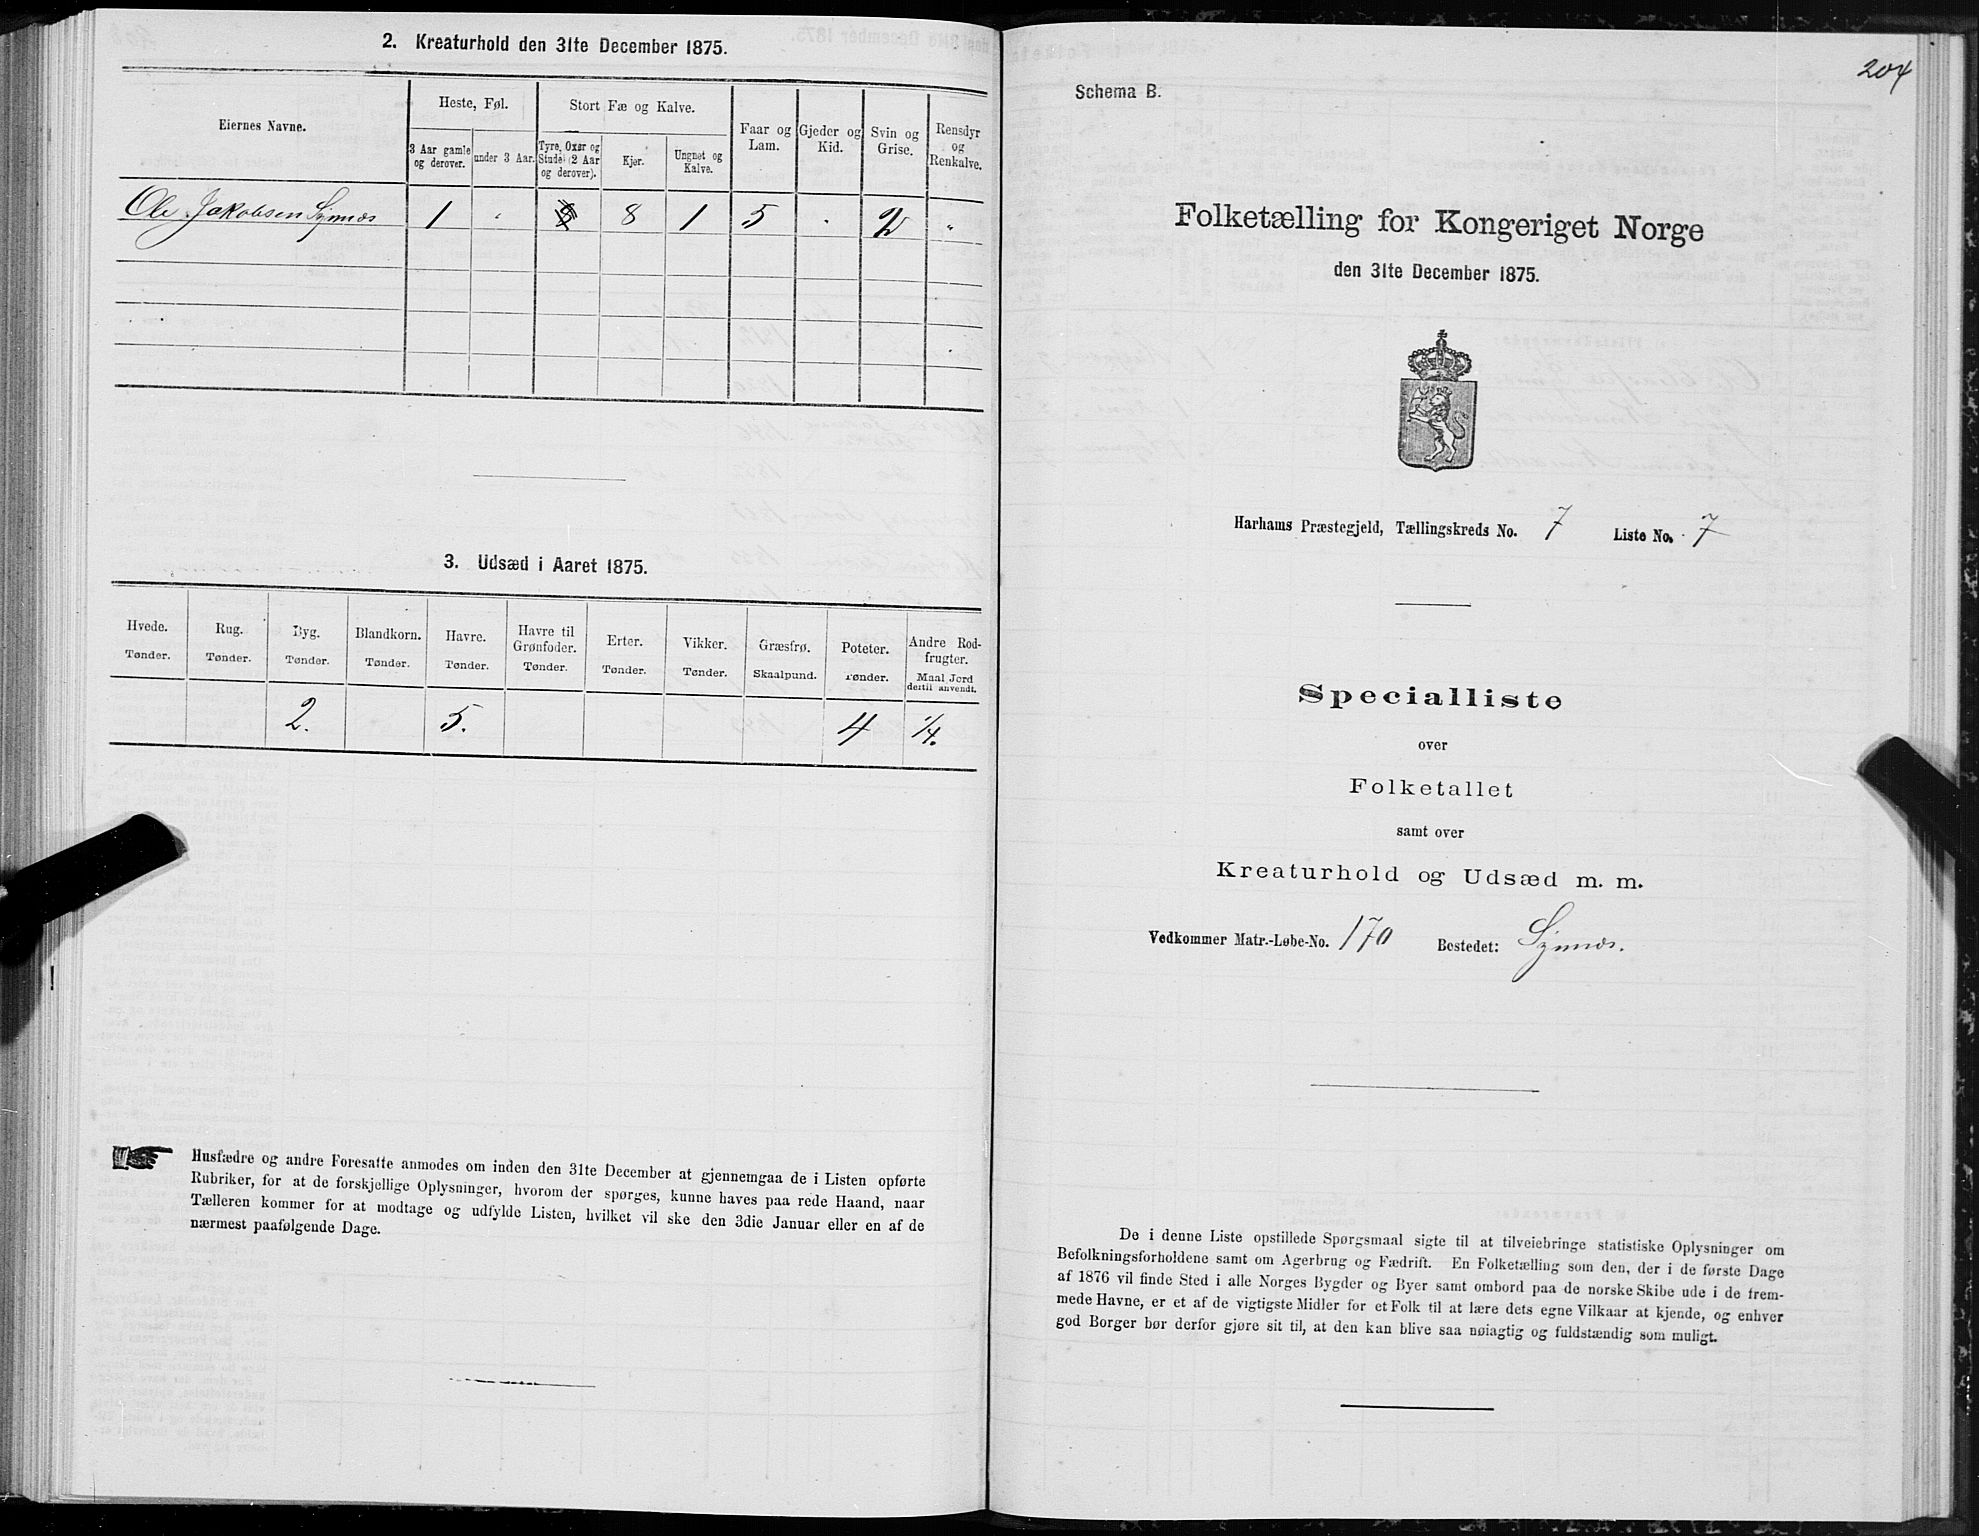 2. Kreaturhold den 31te December 1875.
Eiernes Navne.
Heste, Føl.
Stort Fæ og Kalve.
Faar og Lam.
Gjeder og Kid.
Svin og Grise.
Rensdyr og Renkalve.
3 Aar gamle og derover.
under 3 Aar.
Tyre, Oxer og Stude (2 Aar og derover).
Kjør.
Ungnet og Kalve.
Ole Jakobsen Synnæs 1 8 1 5 2 "
3. Udsæd i Aaret 1875.
Hvede. Rug. Byg. Blandkorn. Havre. Havre til Grønfoder. Erter. Vikker. Græsfrø. Poteter. Andre Rodfrugter.
Tønder. Tønder. Tønder. Tønder. Tønder. Tønder. Tønder. Tønder. Skaalpund. Tønder. Maal Jord dertil anvendt.
2. 5. 4 1/4.
Husfædre og andre Foresatte anmodes om inden den 31te December at gjennemgaa de i Listen opførte
Rubriker, for at de forskjellige Oplysninger, hvorom der spørges, kunne haves paa rede Haand, naar
Tælleren kommer for at modtage og udfylde Listen, hvilket vil ske den 3die Januar eller en af de
nærmest paafølgende Dage.
204
Schema B.
Folketælling for Kongeriget Norge
den 31te December 1875.
Harhams Præstegjeld, Tællingskreds No. 7 Liste No. 7
Specialliste
over
Folketallet
samt over
Kreaturhold og Udsæd m. m.
Vedkommer Matr.-Løbe-No. 170 Bostedet: Synnæs.
De i denne Liste opstillede Spørgsmaal sigte til at tilveiebringe statistiske Oplysninger om
Befolkningsforholdene samt om Agerbrug og Fædrift. En Folketælling som den, der i de første Dage
af 1876 vil finde Sted i alle Norges Bygder og Byer samt ombord paa de norske Skibe ude i de frem-
mede Havne, er et af de vigtigste Midler for et Folk til at lære dets egne Vilkaar at kjende, og enhver
god Borger bør derfor gjøre sit til, at den kan blive saa nøiagtig og fuldstændig som muligt.